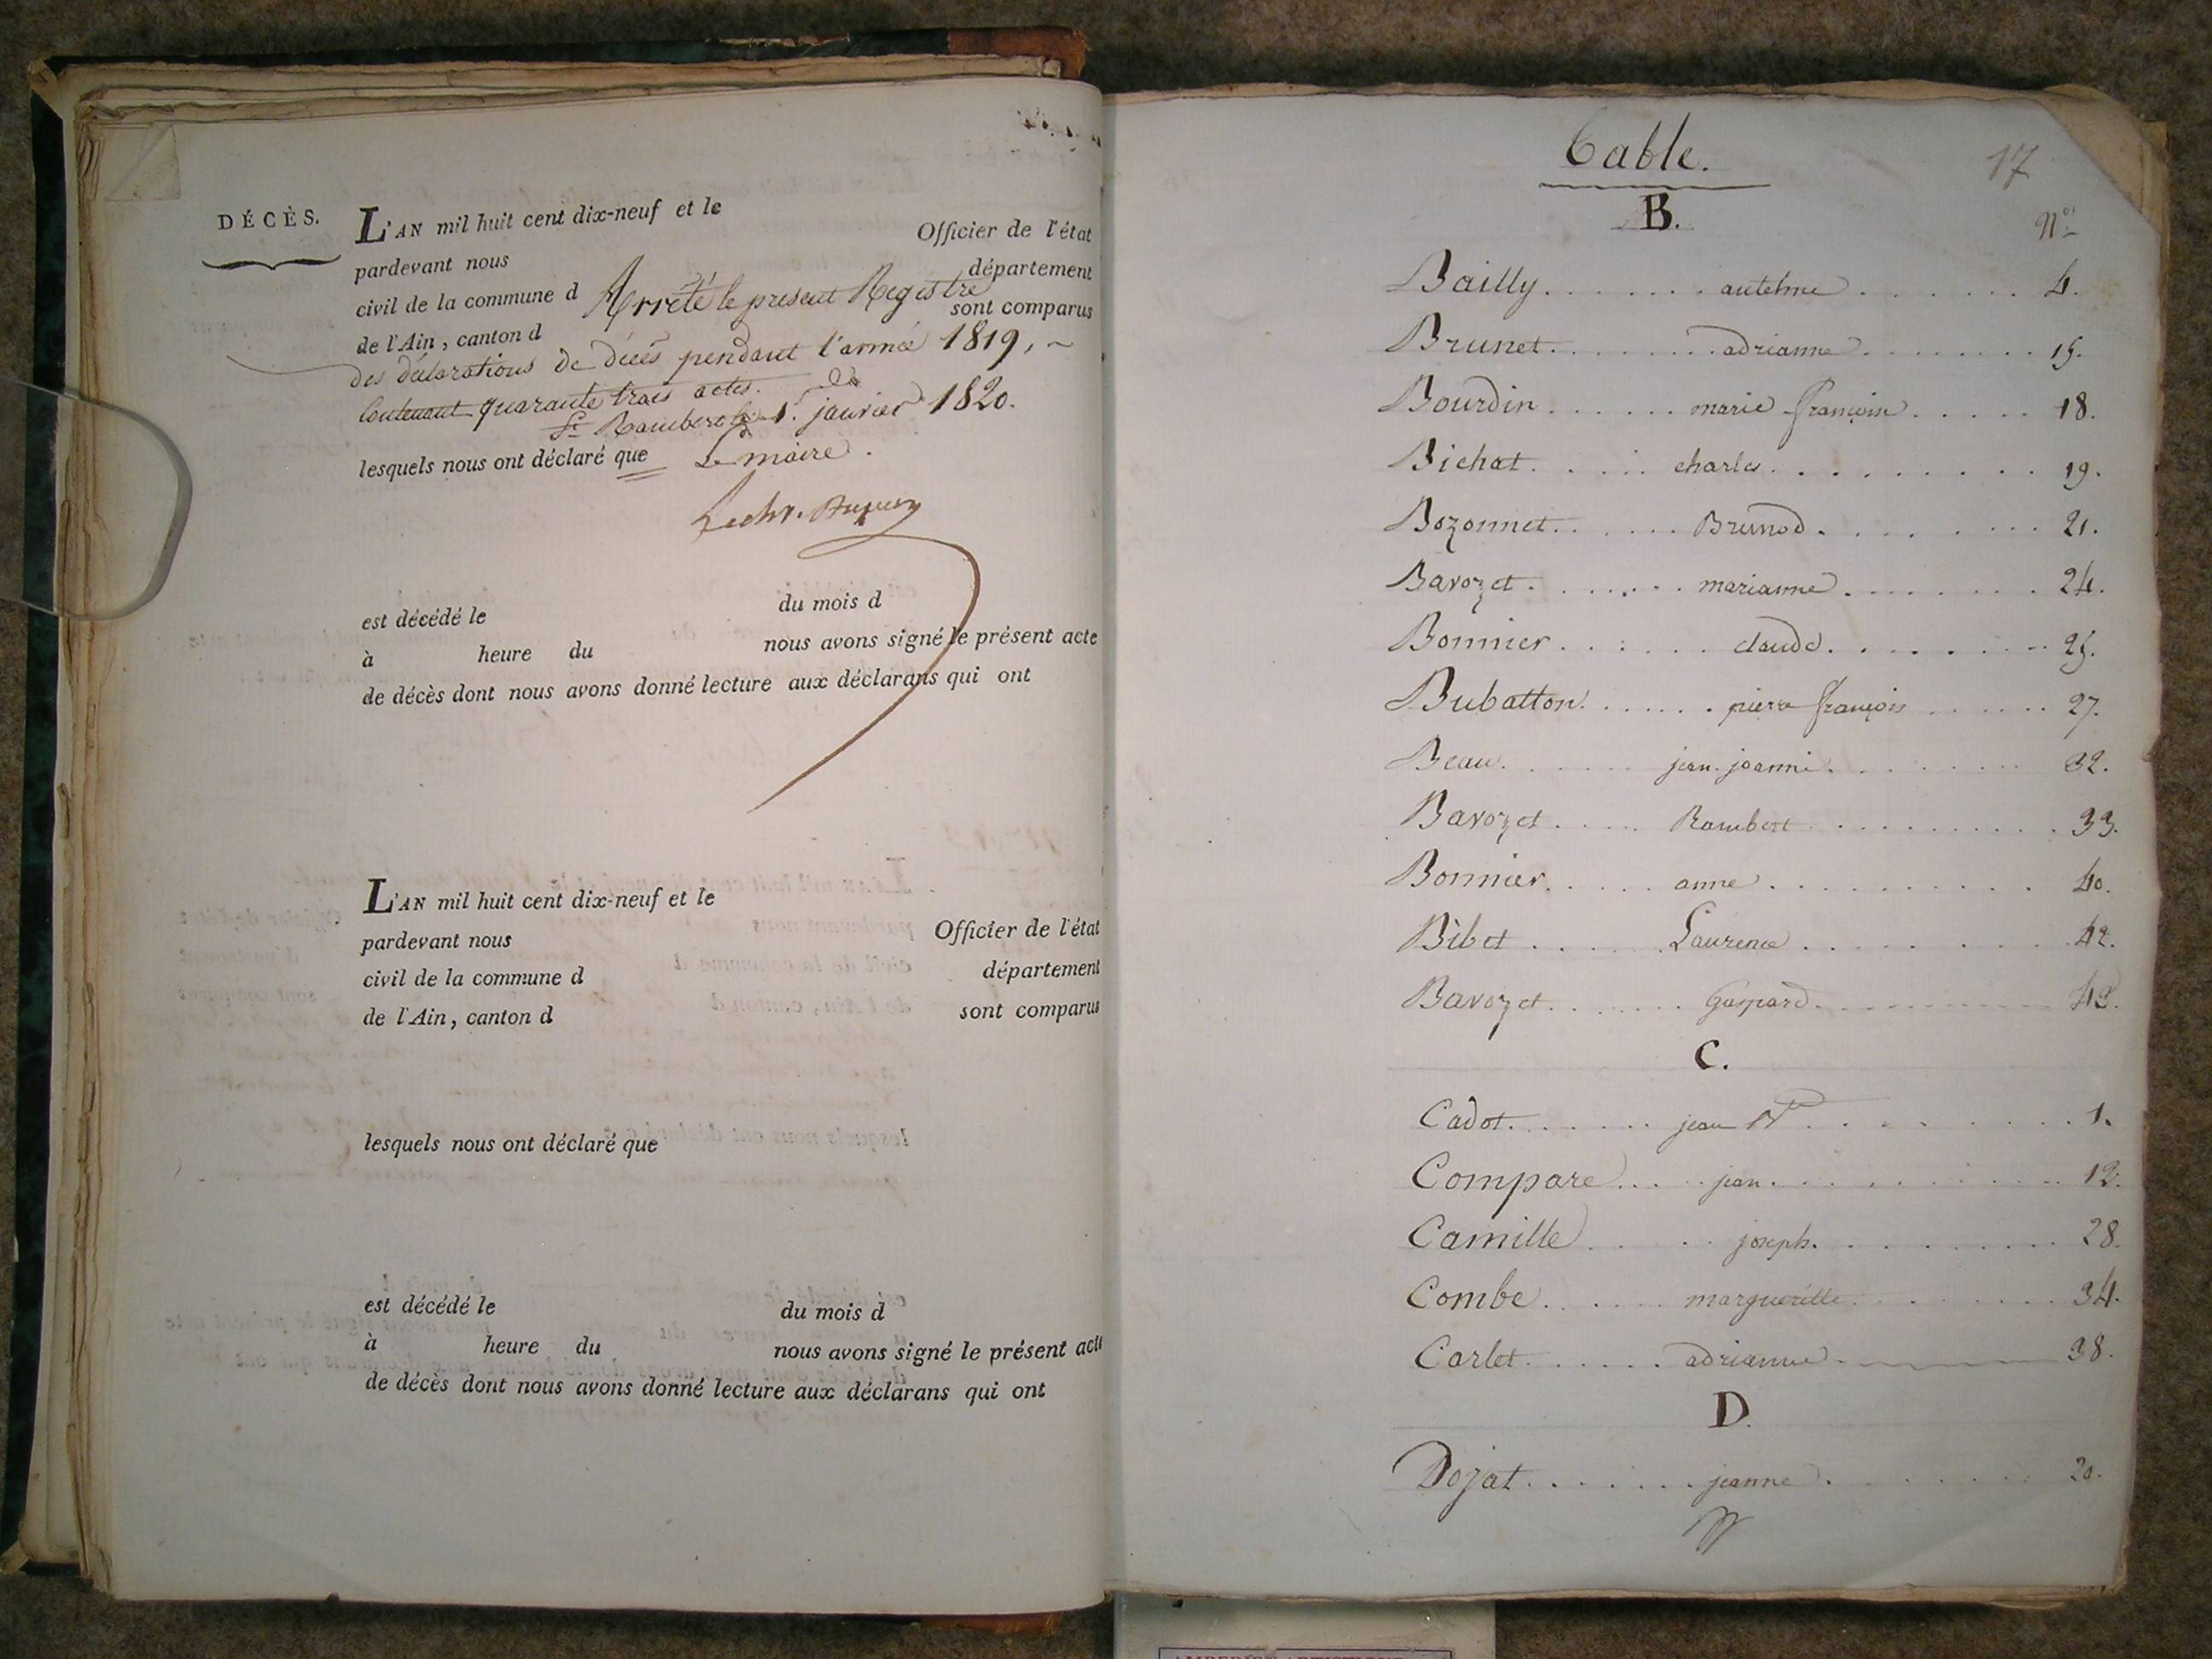 DÉCÈS.
L'AN mil huit cent dix-neuf et le
pardevant nous Officier de l'état
civil de la commune d département
Arrêté le present Registre
de l'Ain, canton d sont comparus
des déclarations de décès pendant l'année 1819, ~
Contenant quarante trois actes.
St Rambert le 1er janvier 1820.
lesquels nous ont déclaré que Le maire.
est décédé le du mois d
à heure du nous avons signé le présent acte
de décès dont nous avons donné lecture aux déclarans qui ont
L'AN mil huit cent dix-neuf et le
pardevant nous Officier de l'état
civil de la commune d département
de l'Ain, canton d sont comparus
lesquels nous ont déclaré que
est décédé le du mois d
à heure du nous avons signé le présent acte
de décès dont nous avons donné lecture aux déclarans qui ont
17
Table.
B.
Nos
Bailly. . . . . . . antelme . . . . . . . 4.
Brunet. . . . . . . . adrianne . . . . . . . . 15.
Bourdin . . . . . . marie françoise . . . . . 18.
Bichat. . . . . . charles. . . . . . . . . . 19.
Bozonnet. . . . . . . Brunod. . . . . . . . . 21.
Bavozet. . . . . . . . marianne . . . . . . . . 24.
Bonnier . . . . . . claude. . . . . . . . . 25.
Bubatton. . . . . . . pierre françois . . . . . . 27.
Beau. . . . . . . jean joanni . . . . . . . . 32.
Bavozet . . . . . Rambert . . . . . . . . . . 33.
Bonnier. . . . . anne . . . . . . . . . . 40.
Bibet . . . . . Laurence . . . . . . . . . 42.
Bavozet. . . . . . . Gaspard. . . . . . . . 43.
C.
Cadot. . . . . . . jean . . . . . . . . 1.
Compare. . . . . jean. . . . . . . . . . 12.
Camille . . . . . joseph. . . . . . . . . . 28.
Combe. . . . . . margueritte. . . . . . . . 34.
Carlet. . . . . . . adrianne. 38.
D.
Dojat. . . . . . . . jeanne . . . . . . . . 20.
AMBERIEU ARTISTIQUE